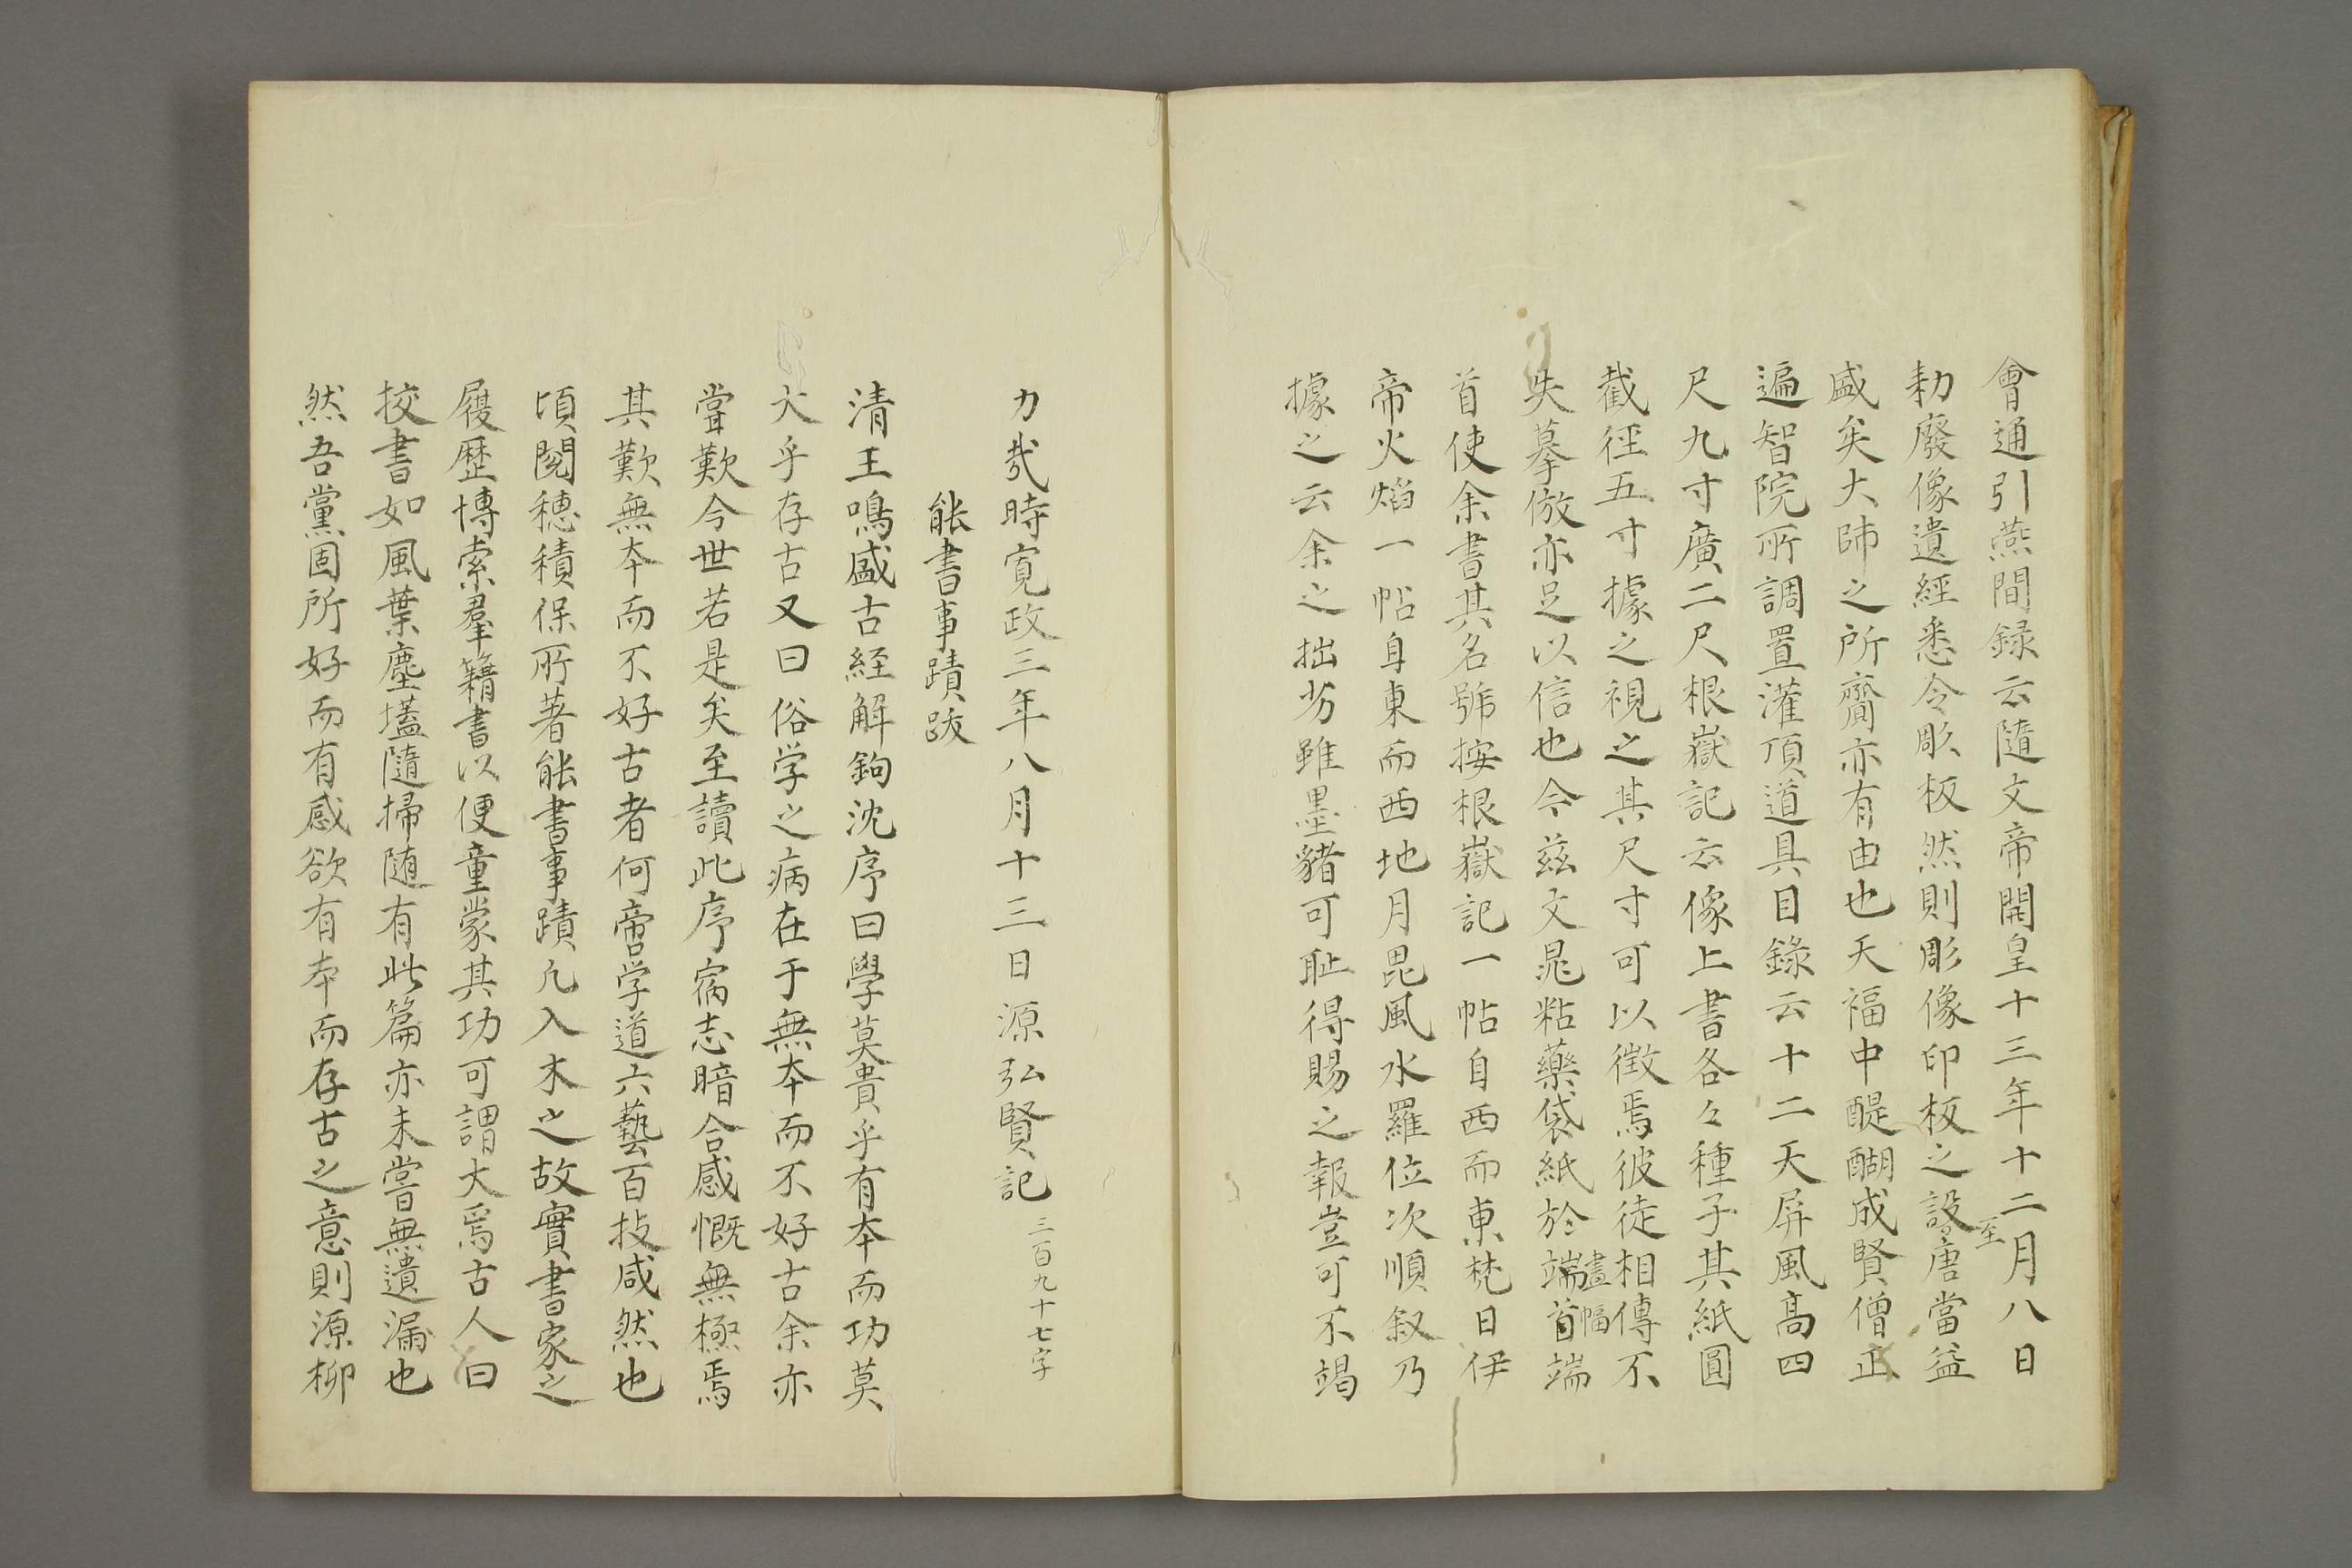 會通引燕間録云隨文帝開皇十三年十二月八日
勅廢像遺經悉令彫板然則彫像印板之設至唐當益
盛矣大師之所齎亦有由也天福中醍醐成賢僧正
遍智院所調置灌頂道具目錄云十二天屏風高四
尺九寸廣二尺根嶽記云像上書各々種子其紙圓
截徑五寸據之視之其尺寸可以徴焉彼徒相傳不
失摹倣亦足以信也今茲文晁粘藥袋紙於畫幅端首端
首使余書其名號按根嶽記一帖自西而東梵日伊
帝火焰一帖自東而西地月毘風水羅位次順叙乃
據之云余之拙劣雖墨豬可耻得賜之報豈可不竭
力哉時寬政三年八月十三日源弘賢記 三百九十七字
能書事蹟跋
清王鳴盛古経解鉤沈序曰學莫貴乎有本而功莫
大乎存古又曰俗学之病在于無本而不好古余亦
嘗歎今世若是矣至讀此序宿志暗合感慨無極焉
其歎無本而不好古者何啻学道六藝百技咸然也
頃閲穂積保所著能書事蹟凡入木之故實書家之
履歴博索羣籍書以便童蒙其功可謂大焉古人曰
挍書如風葉塵壒隨掃随有此篇亦未嘗無遺漏也
然吾黨固所好而有感欲有本而存古之意則源柳